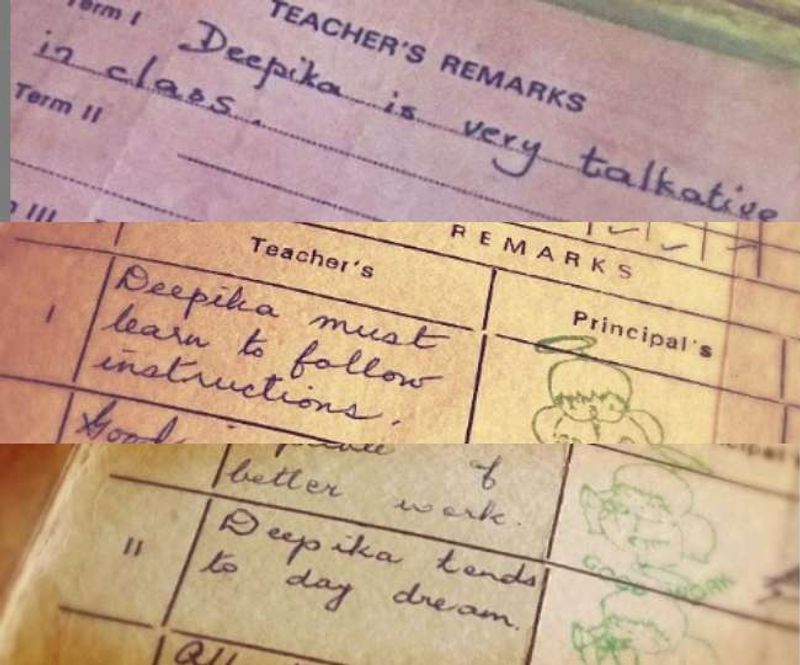 Term I
TEACHER'S REMARKS
Deepika is very talkative
in class.
Term II
III
REMARKS
Teacher's
Principal's
I
Deepika must
learn to follow
instructions.
Good
of
better work.
II
Deepika tends
to day dream.
GOOD WORK
All